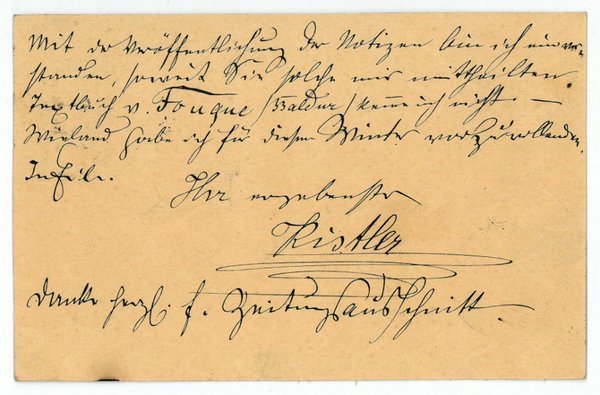 Mit der Veröffentlichung der Notizen bin ich einver-
standen, soweit Sie solche mir mittheilten
Textbuch v. Fouque (Baldur) kenne ich nicht –
Wieland habe ich für diesen Winter vor zu vollenden.
In Eile.
Ihr ergebenster
Kistler
Danke herzl. f. Zeitungsausschnitt.